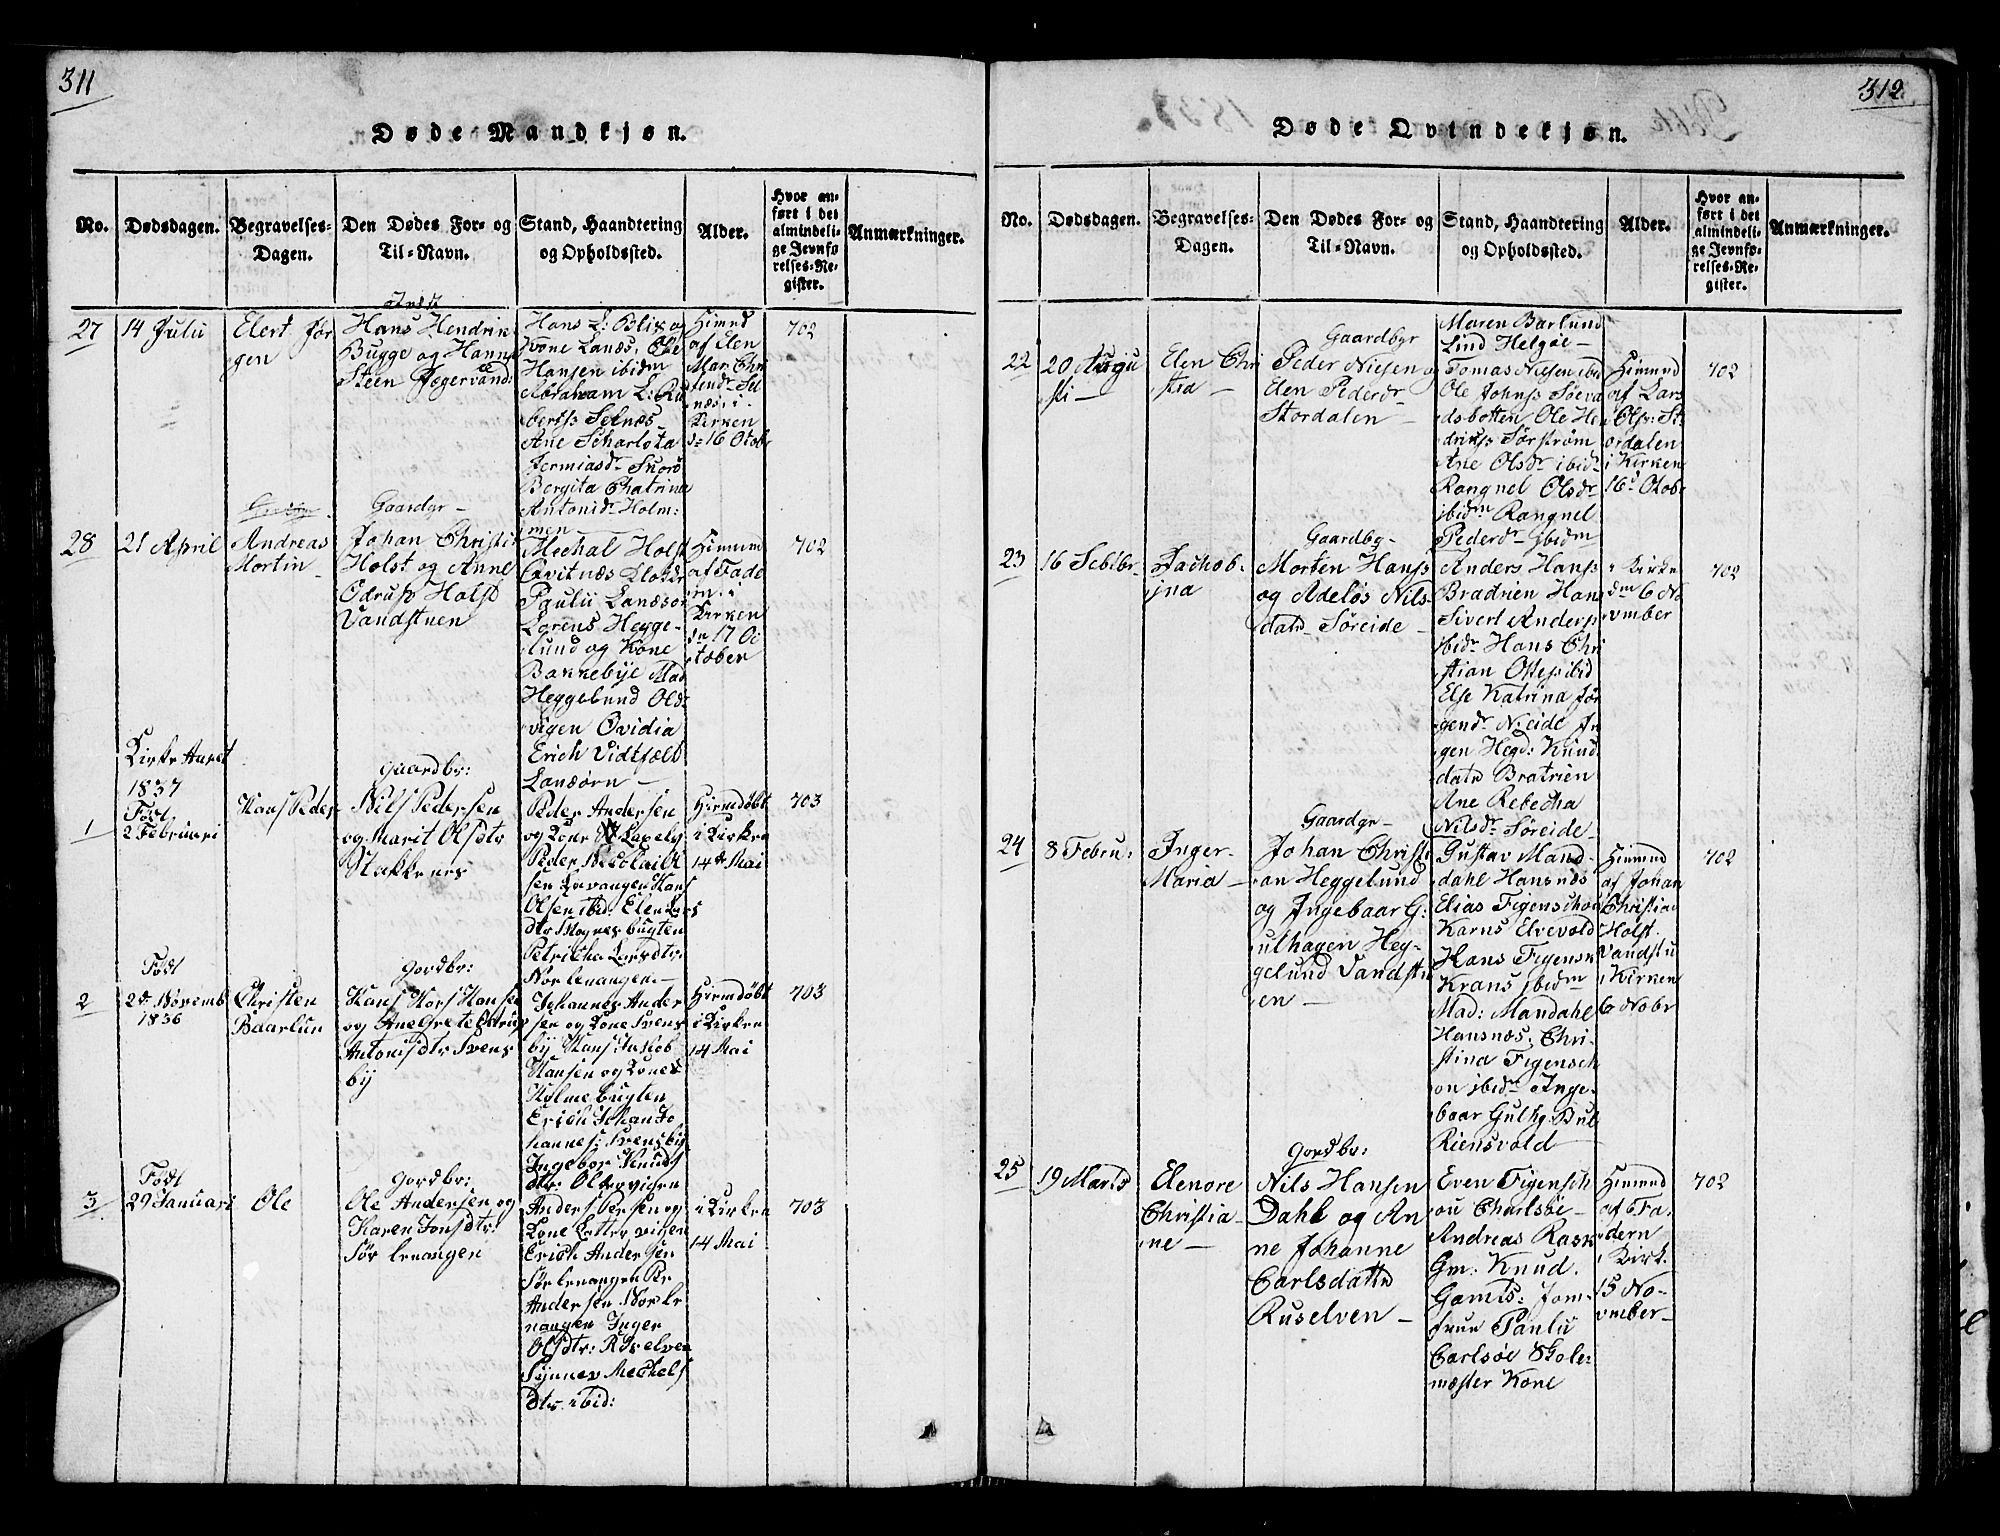 311
Døde Mandkjøn.
No.
Dødsdagen.
Begravelses-
Dagen.
Den Dødes For- og
Til-Navn.
Stand, Haandtering
og Opholdssted.
Alder.
Hvor an-
ført i det
almindeli-
ge Jevnfø-
relses-Re-
gister.
Anmærkninger.
27
14 Julii
Elert Jør
gen
Hans Hendrik
Bugge og Hanna
Steen Jægervand:
Hans L: Blix og
Kone Lanæs, Ole
Hansen ibidm
Abraham L: Ru
bertss Selnæs
Ane Scharlota
Jermiasdr Snors
Bergita Chatrina
Antonidr Holm:
men
Himmd
af Elen
Mar. Chri
stendr Sel
næs, i
Kirken
dn 16 Otobr
702
28
21 April
Andreas
Mortin
Gaardgr
Johan Christi
Holst og Anne
Odrup Holst
Vandstuen
Mechal Holst
Qvitnæs Klokker
Paulii Lanæsør
Lorens Hegge-
lund og Kone
Bakkebye Mad
Heggelund Old-
vigen Ovidia
Erich Vidtfælt
Lanæørn
Himmd
af Fade
rn i
Kirken
dn 17 O
ctober
702
Kirke Aaret
1837
1
Født
2 Februari
Hans Peder
Gaardbr:
Nils Pedersen
og Marit Olsdtr
Stakkenes
Peder Andersen
og Kone Lavely
Peder Nicolaidi
sen Lavangen Hans
Olsen ibid: Elen Lars
dtr Stognes bugten
Petricha Larsdtr
Nor lenangen
Hiemdøbt
i Kirken
14de Mai
703
2
Født
2de Novemb
1836
Christen
Baarlun
Gordbr:
Hans Hors Hanse
og Ane Grete Estrup
Antonisdtr Svens
by
Johannes Ander
sen og Kone Svens
by Hans Jakob
Hansen og Kone
Holme bugten
Erich Johan Jo
hannes: Svensby
Ingebor Knuds
dtr Oldervigen
Hiemdøbt
i Kirken
14 Mai
703
3
Født
29 Januari
Ole
Gordbr:
Ole Andersen og
Karen Jonsdtr
Sør lenangen
Anders Persen og
Kone Latter vigen
Erich Andersen
Sør lenangen Per
Andersen Nor le
nangen Inger
Olsdtr: Røselven
Synnev Mechels
dtr ibid:
i Kirken
14 Mai
703
312
Døde Qvindekjøn.
No.
Dødsdagen.
Begravelses-
Dagen.
Den Dødes For- og
Til-Navn.
Stand, Haandtering
og Opholdssted.
Alder.
Hvor an-
ført i det
almindeli-
ge Jevnfø-
relses-Re-
gister.
Anmærkninger.
22
20 Augu
sti
Elen Chri
stia
Gaardbgr
Peder Nilsen og
Elen Pederdr
Stordalen
Maren Barlund
Lind Helgøe
Tomas Nilsen ibid
Ole Johnss Søeva
dsbotten Ole He
drikss Sørstrøm
Ane Olsdr ibidr
Rangnel Olsdr
ibidm Rangnel
Pederdr ibidm
Himmd
af Lars
Olss: St
ordalen
i Kirken
16 Otobr
702
23
16 Sebtbr
Jachob-
ina
Gaardbg
Morten Hanss
og Adeløs Nils-
datr Søreide
Anders Hanss
Bradrien Hans
Sivert Anderss
ibidr Hans Chri
stian Oless ibid
Else Katrina Jør
gendr N:eide Jn
gen Hegd: Knud
datr Bratrien
Ane Rebecha
Nilsdr Søreide
i Kirke
dn 6 No
vember
702
24
8 Febru:
Inger
Maria
Gaardgr
Johan Christi
an Heggelund
og Ingebaar G:
ulhagen Heg-
gelund Vandstu
en
Gustav Mand-
dahl Hansnæs
Elias Figenschou
Karns Elvevold
Hans Figensk
Krans ibidm
Mad: Mandahl
Hansnæs, Chri-
stina Figensch
ou ibidr Inge-
baar Gulhg Bul
Riensvold
Himmd
af Johan
Christia
Holst
Vandstu
i Kirken
6 Nobr
702
25
19 Marts
Elenore
Christia-
ne
Gordbr:
Nils Hansen
Dahl og An
ne Johanne
Carlsdattr
Ruselven
Even Figensch
ou Charlsøe
Andreas Rask
Gm: Knud.
Gamts: Jom-
frue Paulu
Carlsøe Skole-
mæster Kone
Himmd
af Fa-
dern
i Kirk.
15 No-
vember
702